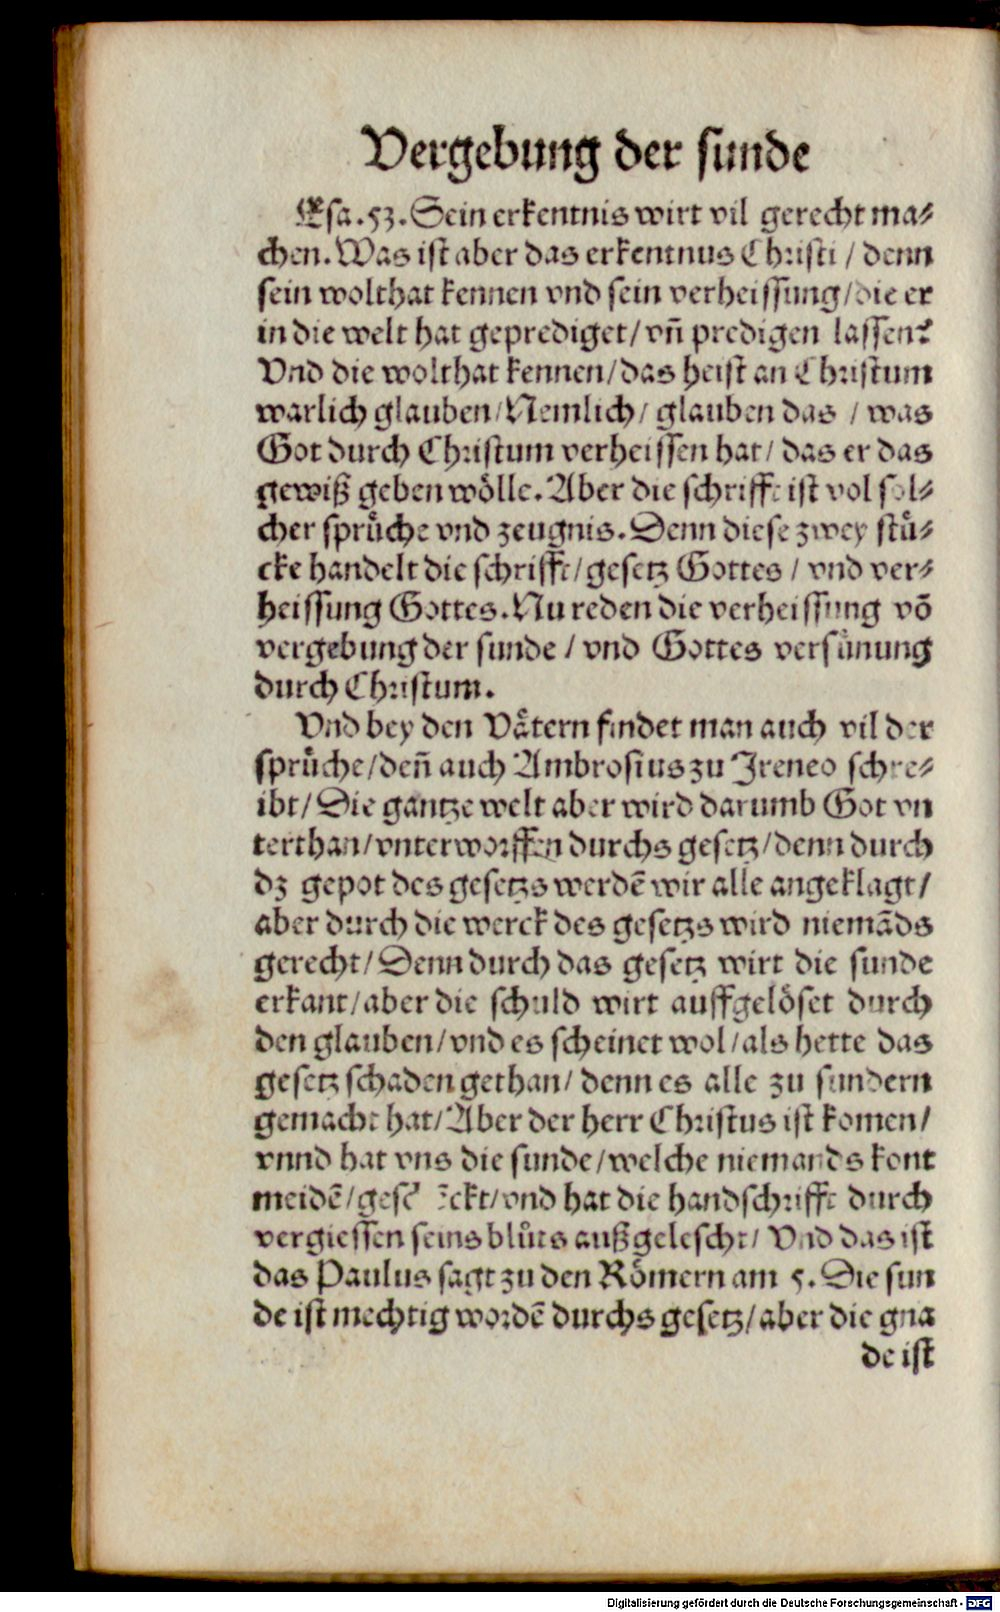 Vergebung der sunde
Esa.53. Sein erkentnis wirt vil gerecht ma⸗
chen. Was ist aber das erkentnus Christi / denn
sein wolthat kennen vnd sein verheissung/die er
in die welt hat geprediget/vñ predigen lassen?
Vnd die wolthat kennen/das heist an Christum
warlich glauben/Nemlich/ glauben das / was
Got durch Christum verheissen hat/ das er das
gewiß geben woͤlle. Aber die schrifft ist vol sol⸗
cher spruͤche vnd zeugnis. Denn diese zwey stuͤ⸗
cke handelt die schrifft/gesetz Gottes / vnd ver⸗
heissung Gottes. Nu reden die verheissung võ
vergebung der sunde / vnd Gottes versuͤnung
durch Christum.
Vnd bey den Vaͤtern findet man auch vil der
spruͤche/deñ auch Ambrosius zu Jreneo schre⸗
ibt/ Die gantze welt aber wird darumb Got vn
terthan/vnterworffen durchs gesetz/denn durch
dz gepot des gesetzs werdẽ wir alle angeklagt/
aber durch die werck des gesetzs wird niemãds
gerecht/ Denn durch das gesetz wirt die sunde
erkant/aber die schuld wirt auffgeloͤset durch
den glauben/vnd es scheinet wol/als hette das
gesetz schaden gethan/ denn es alle zu sundern
gemacht hat/Aber der herr Christus ist komen/
vnnd hat vns die sunde/welche niemands kont
meidẽ/ vnd hat die handschrifft durch
vergiessen seins bluͤts außgelescht/ Vnd das ist
das Paulus sagt zu den Roͤmern am 5. Die sun
de ist mechtig wordẽ durchs gesetz/aber die gna
de ist
Digitalisierung gefördert durch die Deutsche Forschungsgemeinschaft - DFG